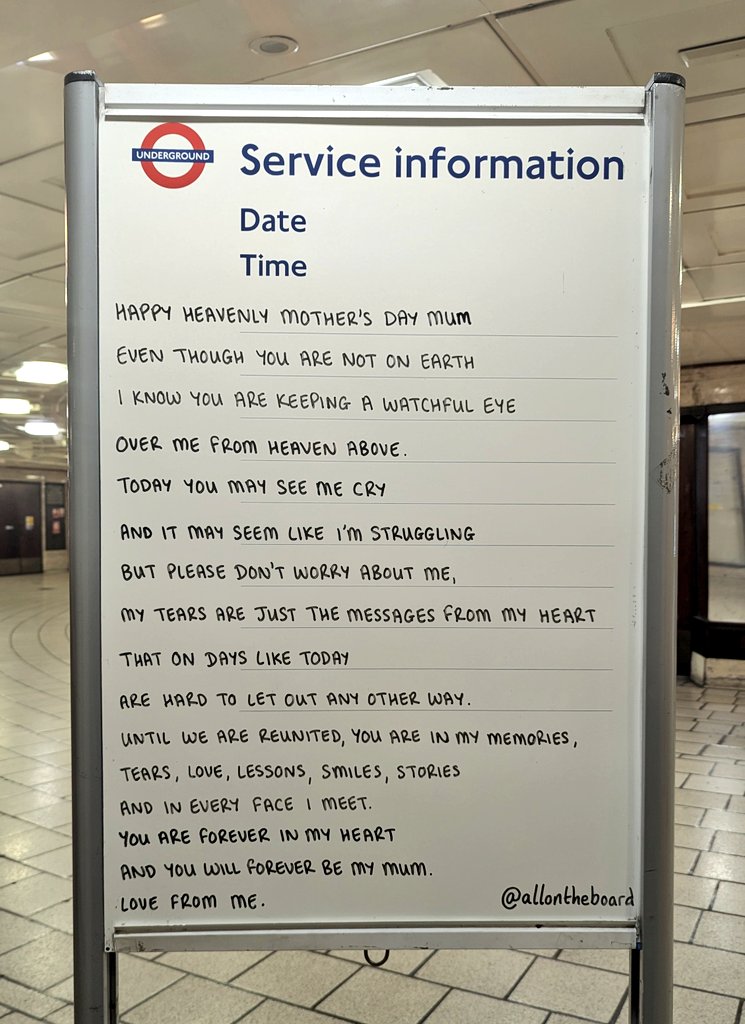 UNDERGROUND
Service information
Date
Time
HAPPY HEAVENLY MOTHER'S DAY MUM
EVEN THOUGH YOU ARE NOT ON EARTH
I KNOW YOU ARE KEEPING A WATCHFUL EYE
OVER ME FROM HEAVEN ABOVE.
TODAY YOU MAY SEE ME CRY
AND IT MAY SEEM LIKE I'M STRUGGLING
BUT PLEASE DON'T WORRY ABOUT ME,
MY TEARS ARE JUST THE MESSAGES FROM MY HEART
THAT ON DAYS LIKE TODAY
ARE HARD TO LET OUT ANY OTHER WAY.
UNTIL WE ARE REUNITED, YOU ARE IN MY MEMORIES,
TEARS, LOVE, LESSONS, SMILES, STORIES
AND IN EVERY FACE I MEET.
YOU ARE FOREVER IN MY HEART
AND YOU WILL FOREVER BE MY MUM.
LOVE FROM ME.
@allontheboard